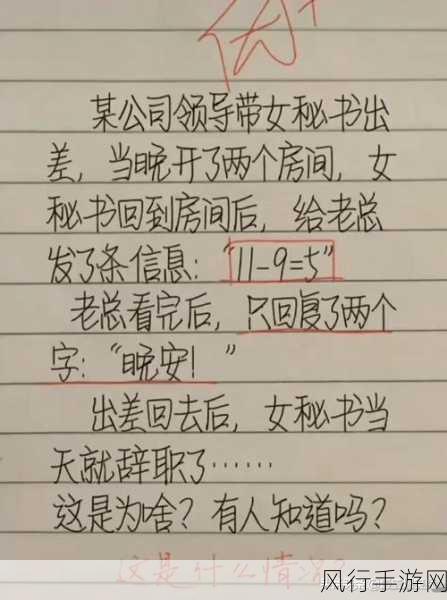 优+
某公司领导带女秘书出
差，当晚开了两个房间，女
秘书回到房间后，给老总
发了条信息：“11-9=5”
老总看完后，只回复了两个
字：“晚安！”
出差回去后，女秘书当
天就辞职了……
这是为啥？有人知道吗？
这是什么情况？
风行手游网